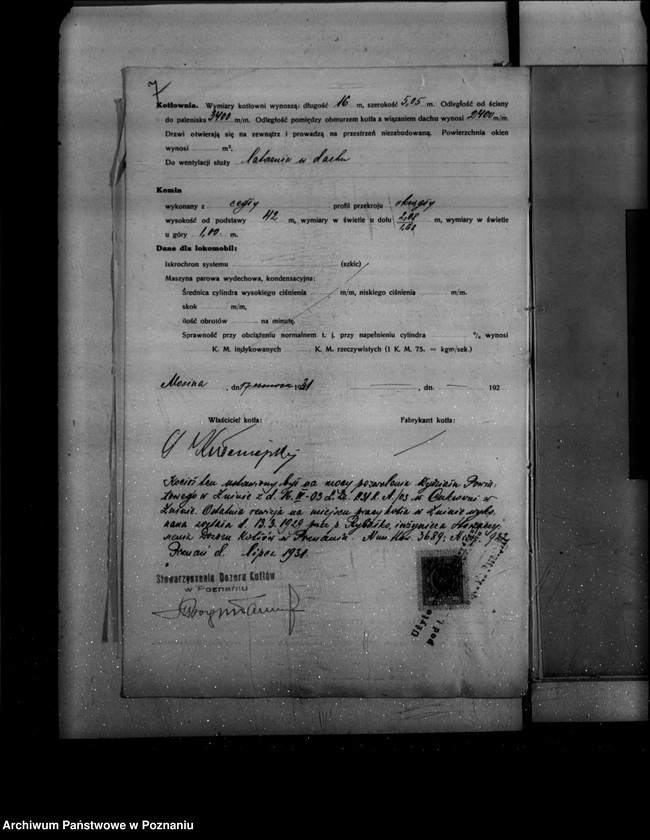 7
Kotłownia. Wymiary kotłowni wynoszą: długość 16 m, szerokość 5,05 m. Odległość od ściany
do paleniska 3400 m/m. Odległość pomiędzy obmurzem kotła a wiązaniem dachu wynosi 2400 m/m.
Drzwi otwierają się na zewnątrz i prowadzą na przestrzeń niezabudowaną. Powierzchnia okien
wynosi m².
Do wentylacji służy latarnia w dachu
Komin
wykonany z cegły profil przekroju okrągły
wysokość od podstawy 42 m, wymiary w świetle u dołu 2,08 1,68 m, wymiary w świetle
u góry 1,00 m.
Dane dla lokomobil:
Iskrochron systemu (szkic)
Maszyna parowa wydechowa, kondensacyjna:
Średnica cylindra wysokiego ciśnienia m/m, niskiego ciśnienia m/m.
skok m/m,
ilość obrotów na minutę.
Sprawność przy obciążeniu normalnem t. j. przy napełnieniu cylindra % wynosi
K. M. indykowanych K. M. rzeczywistych (1 K. M. 75. = kgm/sek.)
Mosina, dn. czerwca 1931 , dn. 192
Właściciel kotła: Fabrykant kotła:
Kocioł ten ustawiony był na mocy pozwolenia Wydziału Powia-
towego w Żninie z d. A/03 w Cukrowni w
Żninie. Ostatnia rewizja na miejscu pracy kotła w Żninie wyko-
nana została d. 13.3.1929 przez p. Rybkę, inżyniera Stowarzy-
szenia Dozoru Kotłów w Poznaniu. 3689;
Poznań d. lipca 1931.
Stowarzyszenie Dozoru Kotłów
w Poznaniu
Użyto
pod l.
Archiwum Państwowe w Poznaniu